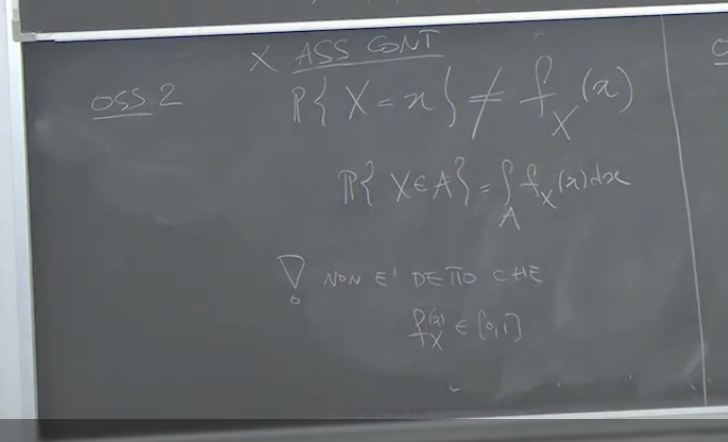 X ASS CONT
OSS 2
P{X=x} ≠ f_X(x)
P{X∈A} = ∫_A f_X(x)dx
! NON E' DETTO CHE
f_X(x) ∈ [0,1]